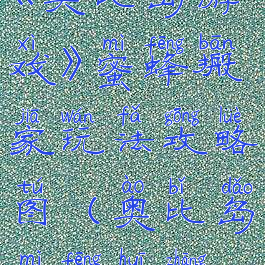 《奥比岛游
xì mì fēng bān
戏》蜜蜂搬
jiā wán fǎ gōng lüè
家玩法攻略
tú ào bǐ dǎo
图(奥比岛
mì fēng huì shàng